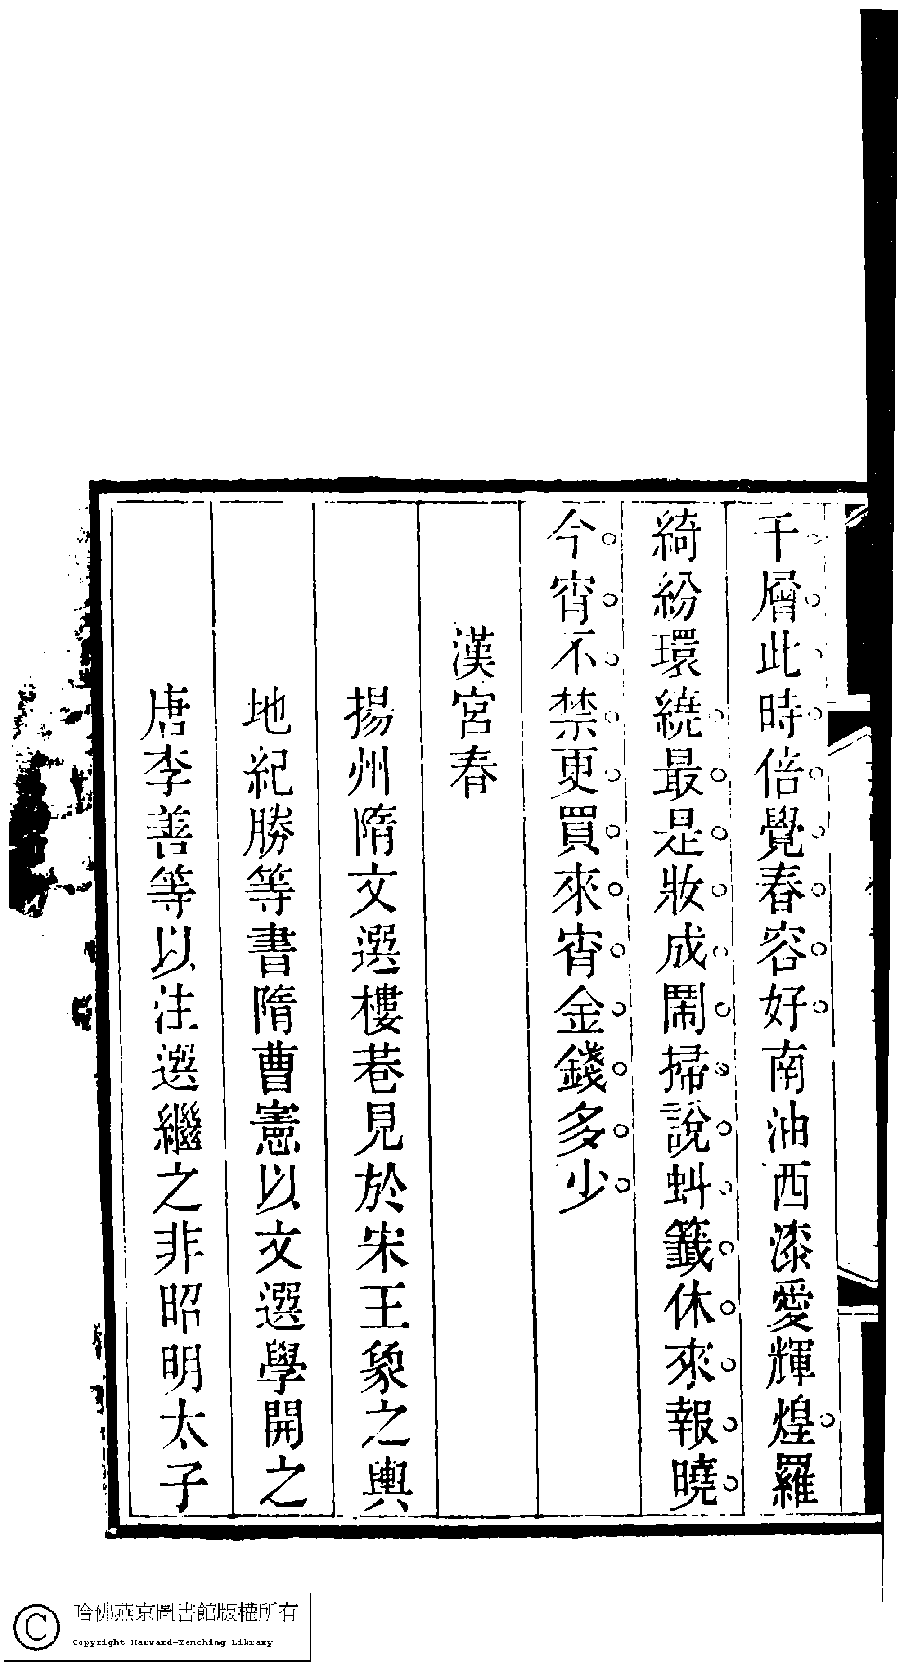 千層此時倍覺春容好南油西漆愛輝煌羅
綺紛環繞最是妝成鬧掃說蚪籤休來報曉
今宵不禁更買來宵金錢多少
漢宮春
揚州隋文選樓巷見於宋王象之輿
地紀勝等書隋曹憲以文選學開之
唐李善等以注選繼之非昭明太子
哈佛燕京圖書館版權所有
Copyright Harvard-Yenching Library